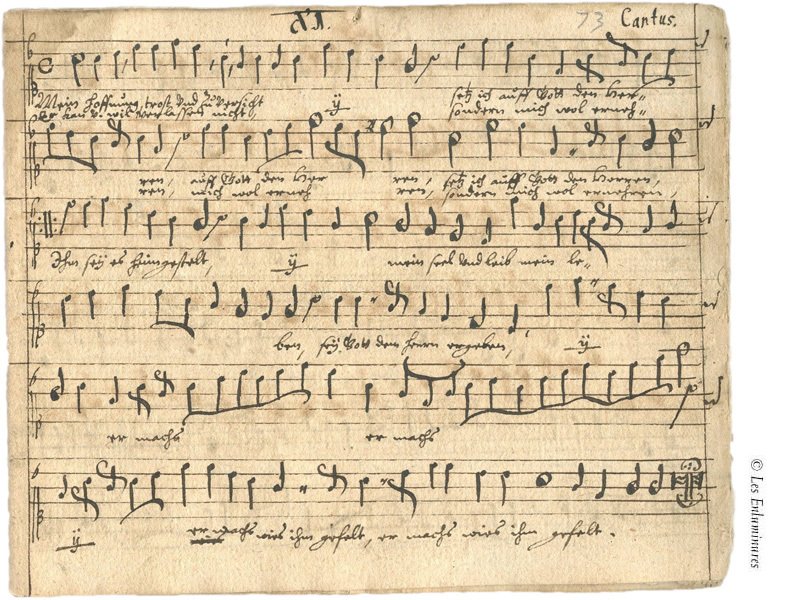 XI. 73 Cantus.
Mein Hoffnung, trost vnd Zuversicht ÿ setz ich auff Gott den Her-
Er kan v. wil verlassen nicht, sondern mich wol erneh-
ren, auff Gott den Her ren, setz ich auff Gott den Herren,
ren, mich wol erneh ren, sondern mich wol ernehren,
Ihm seÿ es heimgestelt, ÿ mein seel vnd leib mein le-
ben, seÿ Gott dem herrn ergeben, ÿ
er machs er machs
ÿ er machs wies ihm gefelt, er machs wies ihm gefelt.
© Les Enluminures